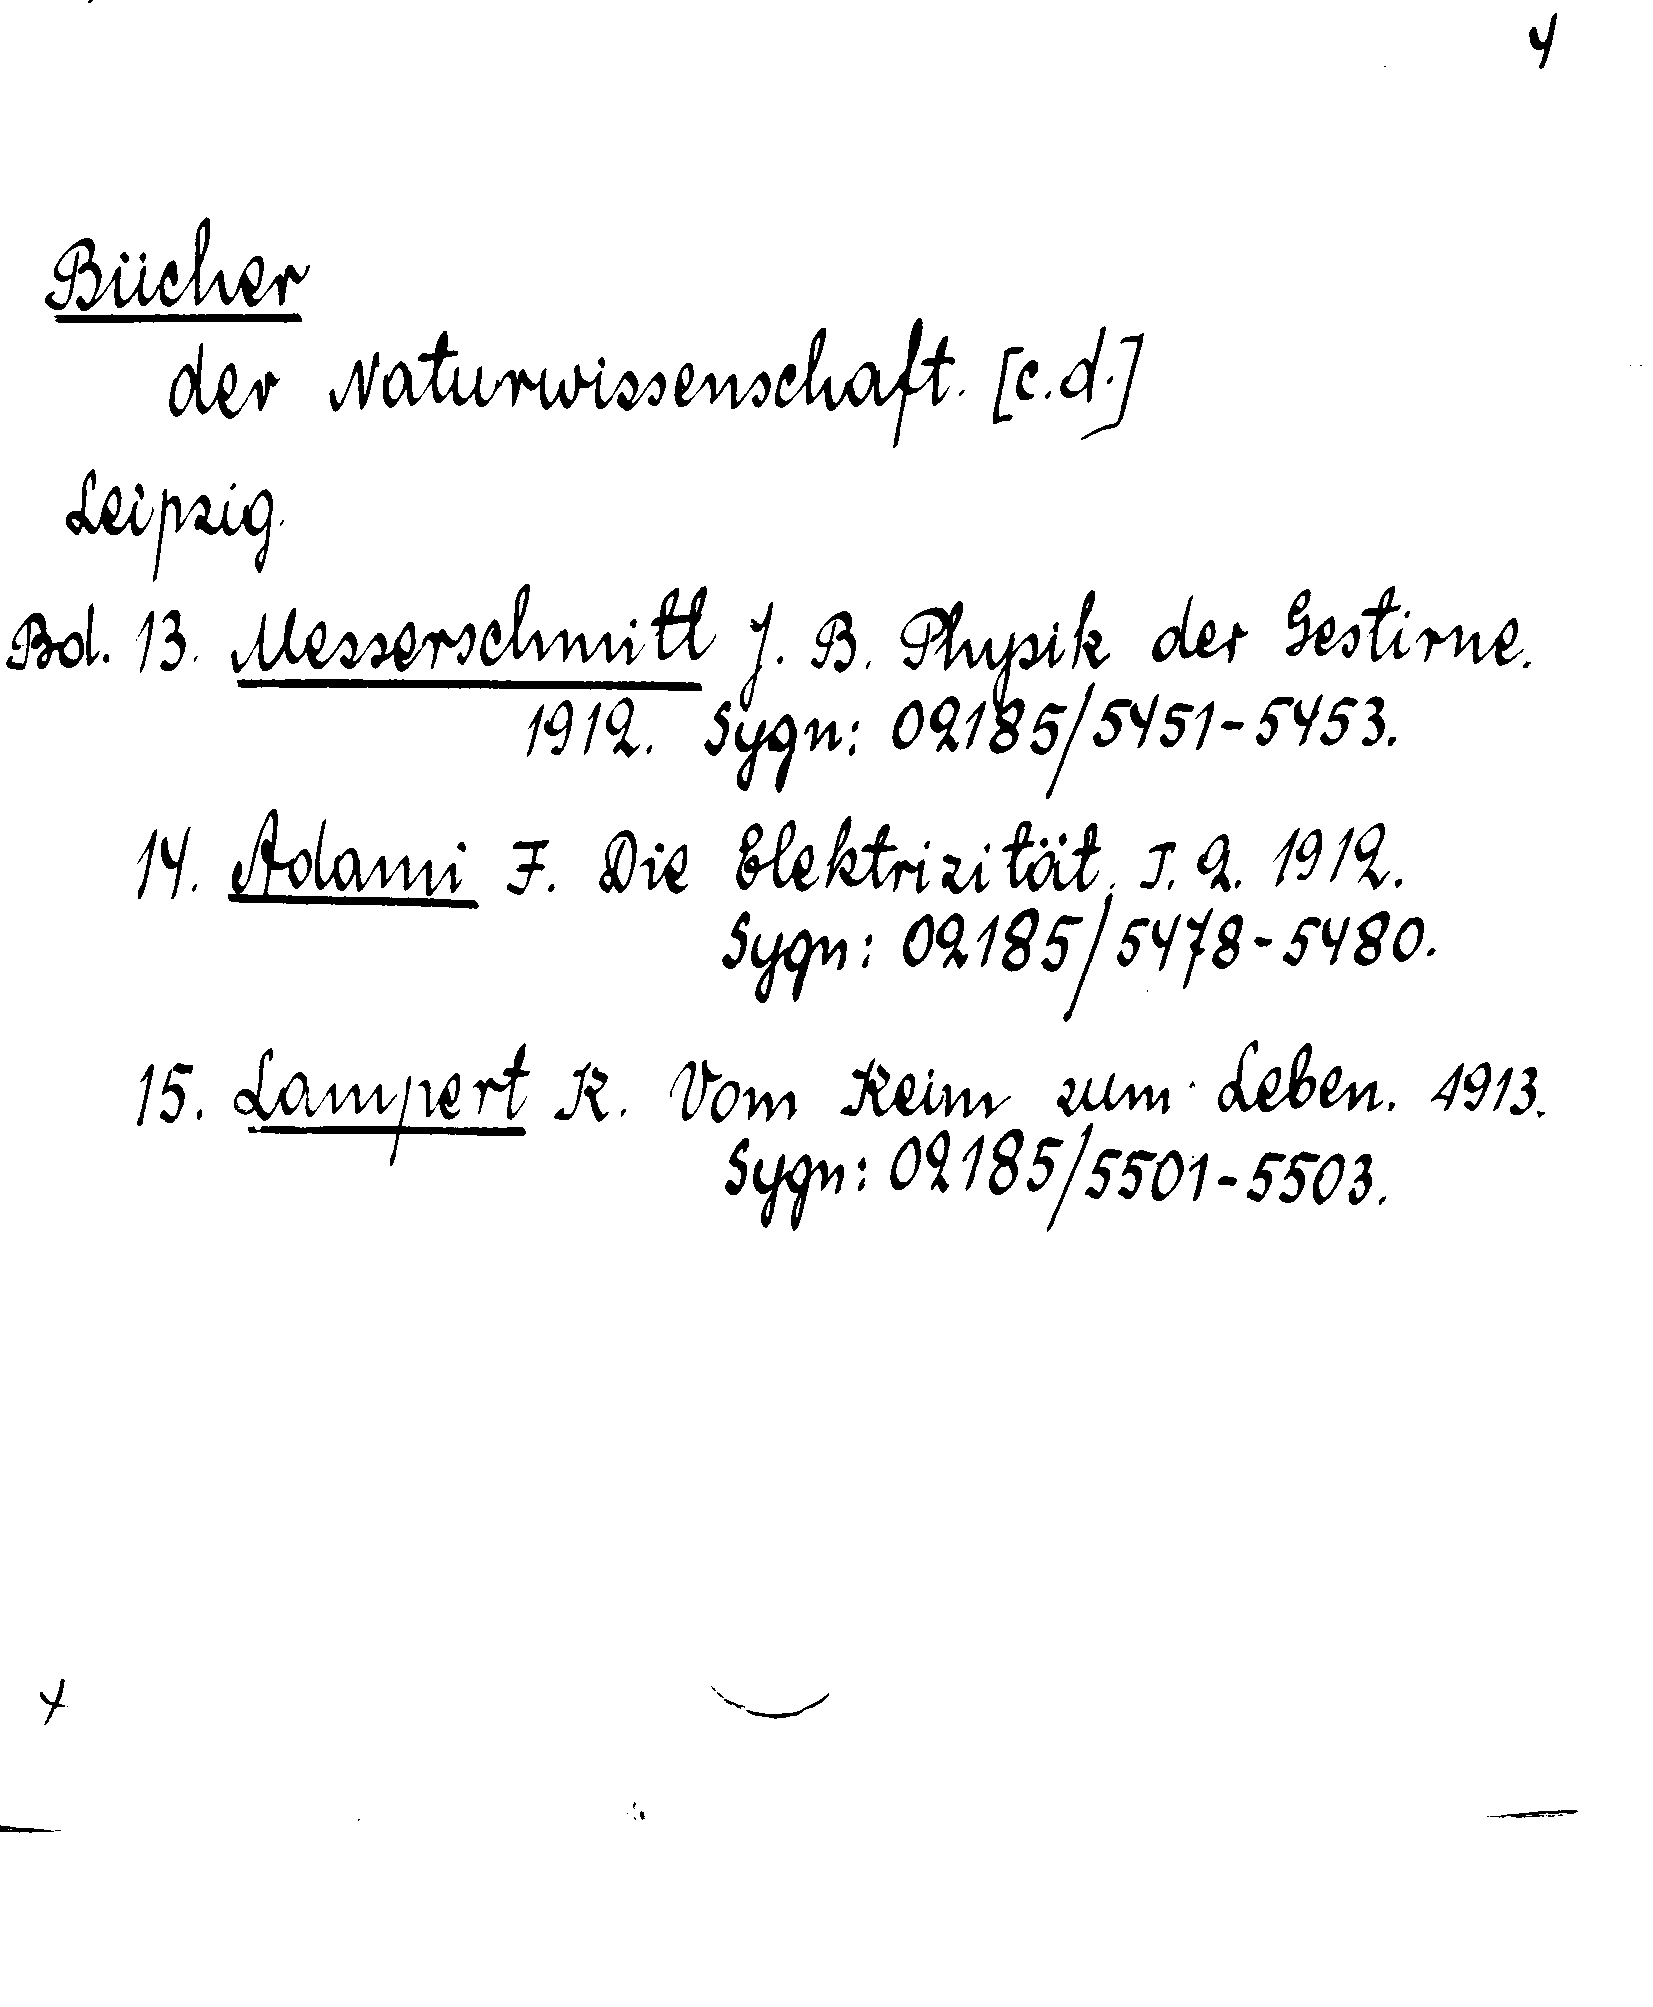 4
Bücher
der Naturwissenschaft. [c.d.]
Leipzig.
Bd. 13. Messerschmitt J. B. Physik der Gestirne.
1912. Sygn: 02185/5451-5453.
14. Adami F. Die Elektrizität. T. 2. 1912.
Sygn: 02185/5478-5480.
15. Lampert K. Vom Keim zum Leben. 1913.
Sygn: 02185/5501-5503.